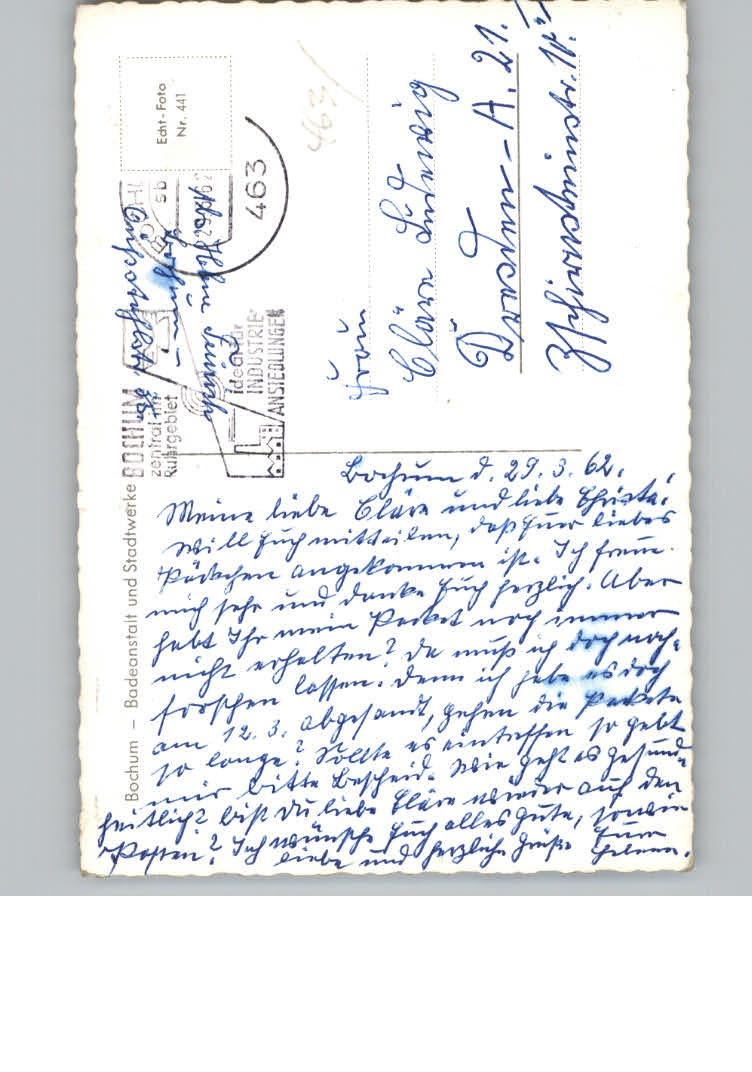 Echt-Foto
Nr. 441
463
BOCHUM
zentral im
Ruhrgebiet
ideal für
INDUSTRIE-
ANSIEDLUNGEN
Bochum – Badeanstalt und Stadtwerke
Abs. Helene
Bochum –
463/
Frau
Kläre Ludewig
Dresden – A. 21.
Bochum d. 29. 3. 62.
Meine liebe Kläre und liebe Christa!
Will Euch mitteilen, daß Euer liebes
Päckchen angekommen ist. Ich freue
mich sehr und danke Euch herzlich. Aber
habt Ihr mein Packet noch immer
nicht erhalten? Da muß ich doch nach-
forschen lassen. Denn ich habe es doch
am 12. 3. abgesandt, gehen die Packete
so lange? Sollte es eintreffen so gebt
mir bitte Bescheid. Wie geht es gesund-
heitlich? bist Du liebe Kläre wieder auf den
Posten? Ich wünsche Euch alles gute, sowie
liebe und herzliche Grüße Eure
Helene.